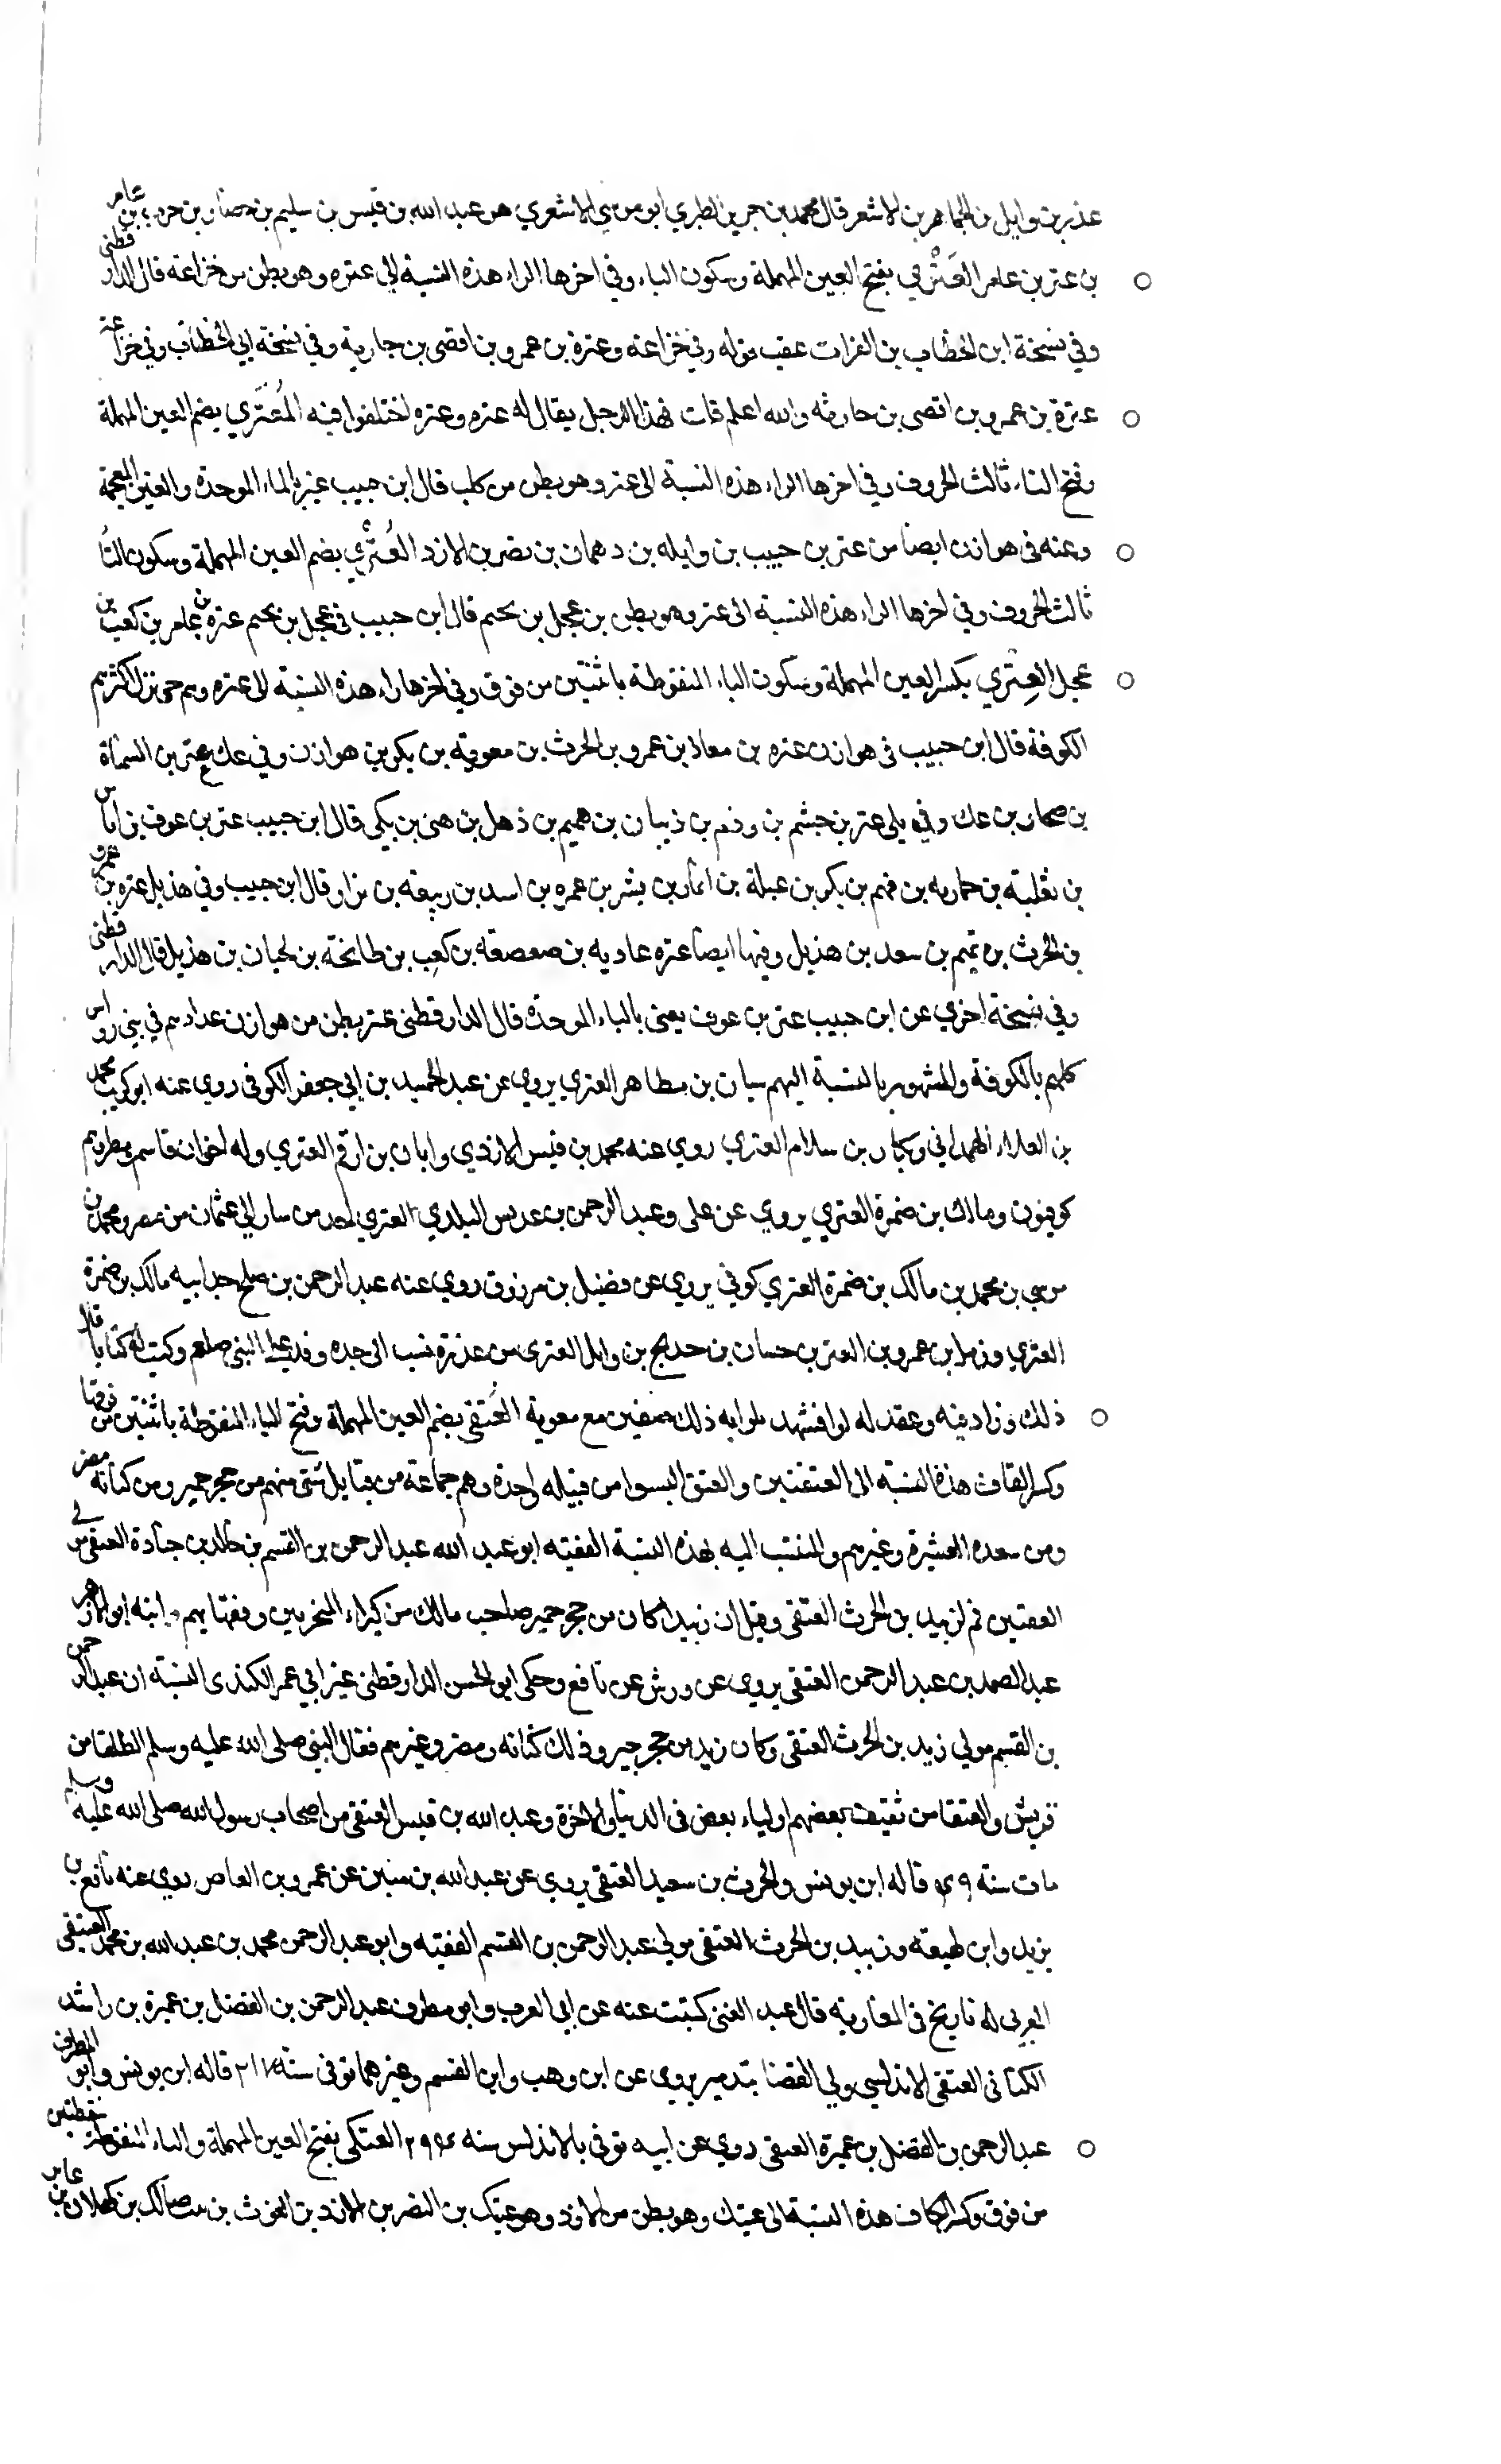 عذر بن وايل بن الجماهر بن الاشعر قال محمد بن جرير الطبري ابو موسي الاشعري هو عبد الله بن قيس بن سليم بن حصار بن حرب بن عامر
بن عتر بن عامر العَتْري بفتح العين المهملة وسكون التاء وفي اخرها الراء هذه النسبة الي عتره وهو بطن من خزاعه قال الدارقطني
وفي نسخة ابن الخطاب بن الفرات عقيب قوله وفي خزاعه وعترة بن عمرو بن افصى بن جارية وفي نسخة ابي الخطاب وفي خزاعة
عترة بن عمرو بن افصى بن حارثه والله اعلم قلت فهذا الرجل يقال له عتره وعنزه اختلفوا فيه العُتَري بضم العين المهملة
وفتح التاء ثالث الحروف وفي اخرها الراء هذه النسبة الى عتر وهو بطن من كلب قال ابن حبيب غبر بالباء الموحدة والغين المعجمة
وعنه في هوازن ايضا من عتر بن حبيب بن وايله بن دهمان بن نصر بن الازد العُتْري بضم العين المهملة وسكون التا
ثالث الحروف وفي اخرها الراء هذه النسبة الى عتر وهو بطن بن عجل بن لجيم قال ابن حبيب في عجل بن لجيم عتره بن عامر بن كعب بن
عجل العِتري بكسر العين المهملة وسكون التاء المنقوطة باثنتين من فوق وفي اخرها راء هذه النسبة الى عتره وهم حي نزل اكثرهم
الكوفة قال ابن حبيب في هوازن عتره بن معاذ بن عمرو بن الحرث بن معوية بن بكر بن هوازن وفي عك عتر بن السماة
بن صحار بن عك وفي بلى عتر بن جشم بن وذم بن ذبيان بن هميم بن ذهل بن هنى بن بلي قال ابن حبيب عتر بن عوف بن اياس
بن ثعلبة بن جاريه بن فهم بن بكر بن عبلة بن انمار بن بشر بن عميره بن اسد بن ربيعه بن نزار وقال ابن حبيب وفي هذيل عتره بن عمرو
بن الحرث بن تميم بن سعد بن هذيل وفيها ايضا عتره عاديه بن صعصعه بن كعب بن طابخة بن لحيان بن هذيل قال الدارقطني
وفي نسخة اخري عن ابن حبيب عتر بن عوف يعنى بالباء الموحدة قال الدارقطنى عتر بطن من هوازن عدادهم في بني رواس
كلهم بالكوفة والمشهور بالنسبة اليهم سيان بن مظاهر العتري يروي عن عبد الحميد بن ابي جعفر الكوفي روي عنه ابو كريب محمد
بن العلاء الهمداني وبكار بن سلام العتري روي عنه محمد بن قيس الازدي وابان بن ارقم العتري وله اخوان قاسم ومطر هم
كوفيون ومالك بن ضمرة العتري يروي عن على وعبد الرحمن بن عديس البلدي العتري احد من سار الي عثمان من مصر ومحمد بن
موسي بن محمد بن مالك بن ضمرة العتري كوفي يروي عن فضيل بن مرزوق روي عنه عبد الرحمن بن صلح جد ابيه مالك بن ضمرة
العتري وزمل بن عمرو بن العتر بن حسان بن حديج بن وايل العترى من عذرة نسب الى جده وفد على النبي صلعم وكتب له كتابا قال
ذلك وزاد فيه وعقد له لوا فشهد بلوايه ذلك صفين مع معوية العُتَقي بضم العين المهملة وفتح التاء المنقوطة باثنتين من فوقها
وكسر القاف هذه النسبه الى العتقيين والعتق ليسوا من قبيله واحده وهم جماعة من قبايل شتى منهم من حجر حمير ومن كنانه مضر
ومن سعده العشيرة وغيرهم والمنتسب اليه بهذه النسبة الفقيه ابو عبد الله عبد الرحمن بن القسم بن خالد بن جنادة العتقي من
العتقيين ثم لزبيد بن الحرث العتقي وقيل ان زبيدا كان من حجر حمير صاحب مالك من كبراء المصريين وفقهايهم وابنه ابو الازهر
عبد الصمد بن عبد الرحمن العتقي يروي عن ورش عن نافع وحكى ابو الحسن الدارقطنى عن ابي عمر الكندى النسبة ان عبد الرحمن
بن القسم مولي زبيد بن الحرث العتقي وكان زبيد من حجر حمير وذلك كنانه ومضر وغيرهم فقال النبي صلى الله عليه وسلم الطلقا من
قريش والعتقا من ثقيف بعضهم اولياء بعض في الدنيا والاخرة وعبد الله بن قيس العتقي من اصحاب رسول الله صلى الله عليه وسلم
مات سنة ٤٩ قاله ابن يونس والحرث بن سعيد العتقي يروي عن عبد الله بن منين عن عمرو بن العاص روي عنه نافع بن
يزيد وابن لهيعة وزبيد بن الحرث العتقي مولي عبد الرحمن بن القسم الفقيه وابو عبد الرحمن محمد بن عبد الله بن محمد العتيقي
المغربي له تاريخ في المغاربة قال عبد الغني كتبت عنه عن ابي العرب وابو مطرف عبد الرحمن بن الفضل بن عميرة بن راشد
الكناني العتقي الاندلسي ولي القضا بتدمير يروي عن ابن وهب وابن القسم وغيرهما توفي سنة ٢١٧ قاله ابن يونس وابو المطرف
عبد الرحمن بن الفضل بن عميرة العتقي روي عن ابيه توفي بالاندلس سنه ٢٩٤ العتكي بفتح العين المهملة والتاء المنقوطة بنقطتين
من فوق وكسر الكاف هذه النسبة الى عتيك وهو بطن من الازد وهو عتيك بن النضر بن الازد بن الغوث بن نبت بن مالك بن كهلان بن عابر